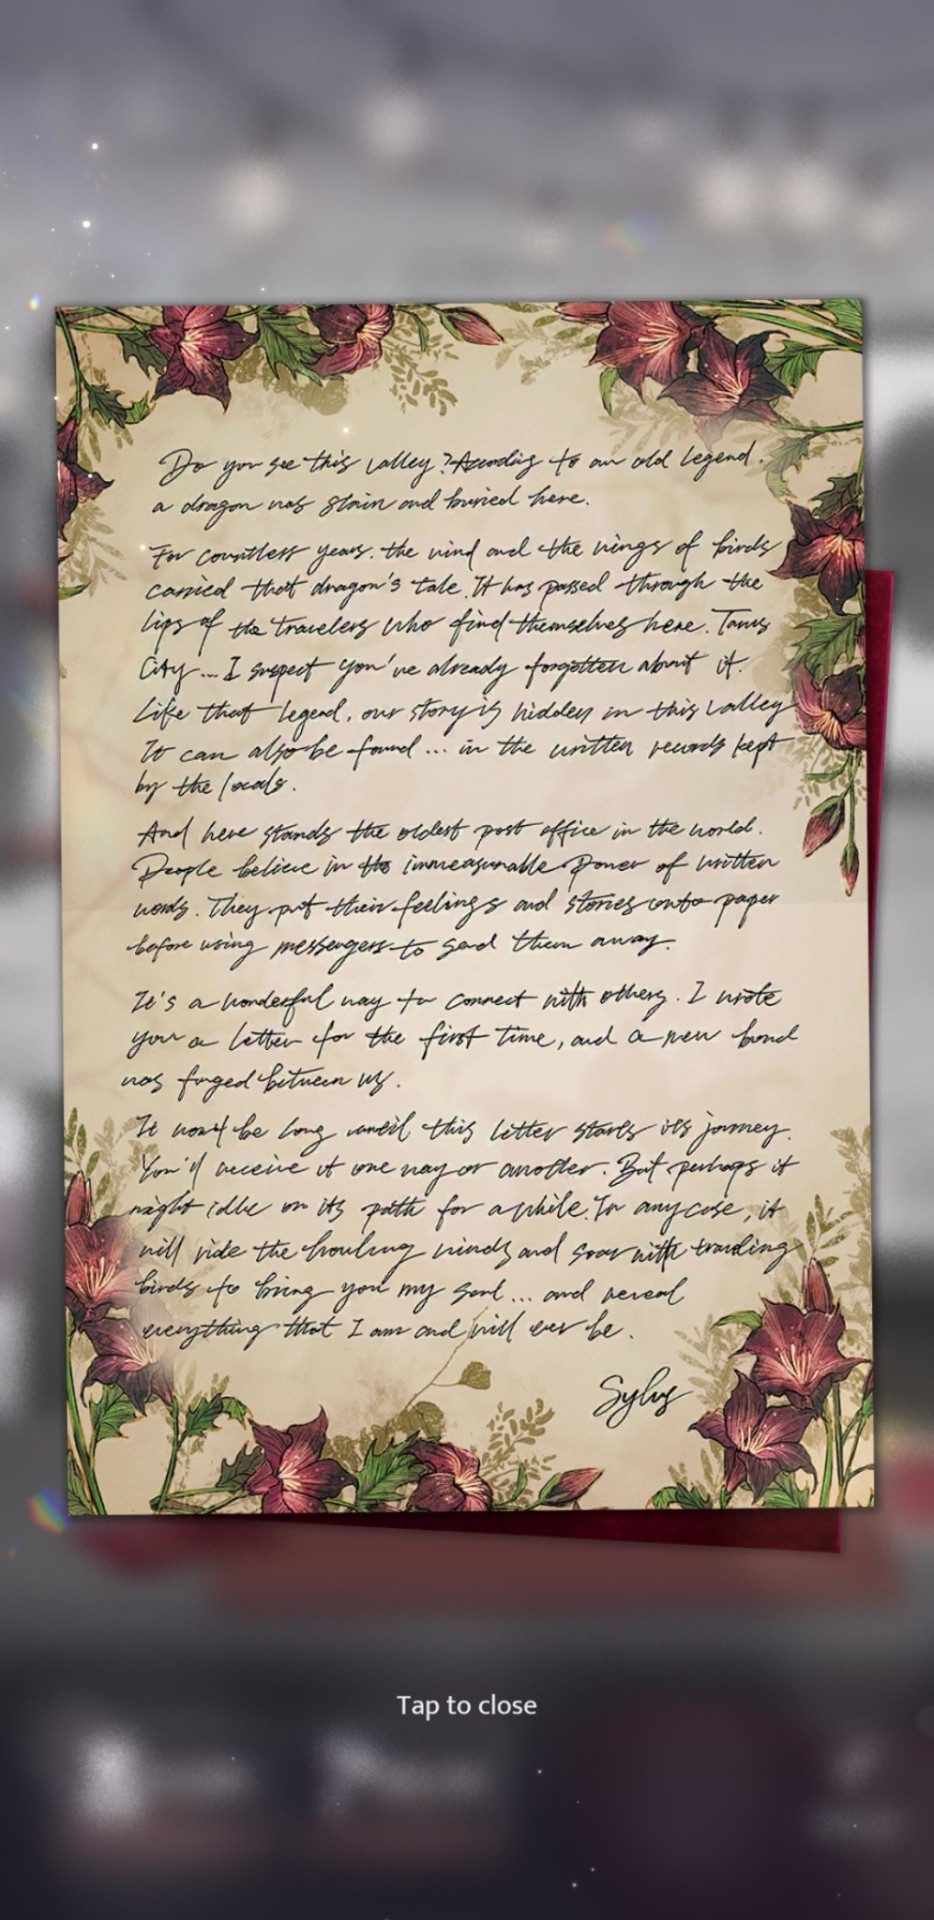 Do you see this valley? According to an old legend.
a dragon was slain and buried here.
For countless years. the wind and the wings of birds
carried that dragon's tale. It has passed through the
lips of the travelers who find themselves here. Tanus
City... I suspect you've already forgotten about it.
Like that legend, our story is hidden in this valley
It can also be found... in the written records kept
by the locals.
And here stands the oldest post office in the world.
People believe in the immeasurable power of written
words. They put their feelings and stories onto paper
before using messengers to send them away.
It's a wonderful way to connect with others. I wrote
you a letter for the first time, and a new bond
was forged between us.
It won't be long until this letter starts its journey.
You'll receive it one way or another. But perhaps it
might idle on its path for a while. In any case, it
will ride the howling winds and soar with traveling
birds to bring you my soul... and reveal
everything that I am and will ever be.
Sylus
Tap to close